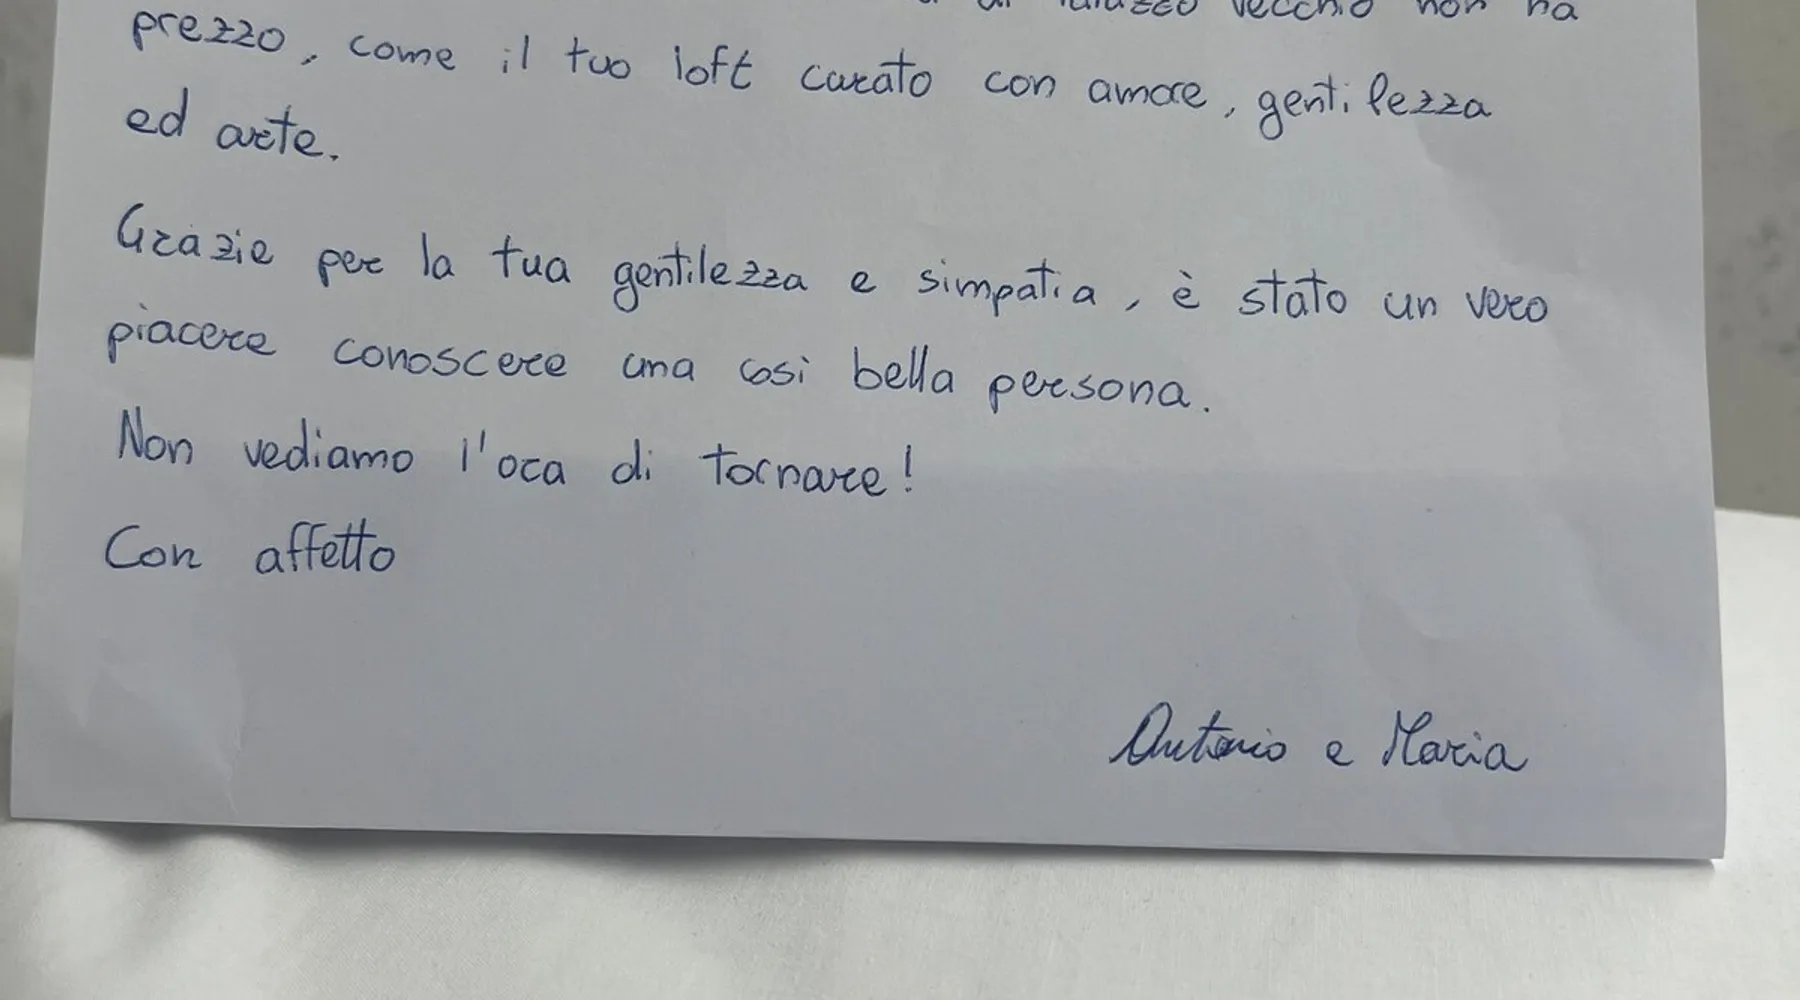 di Palazzo Vecchio non ha
prezzo, come il tuo loft curato con amore, gentilezza
ed arte.
Grazie per la tua gentilezza e simpatia, è stato un vero
piacere conoscere una così bella persona.
Non vediamo l'ora di tornare!
Con affetto
Antonio e Maria